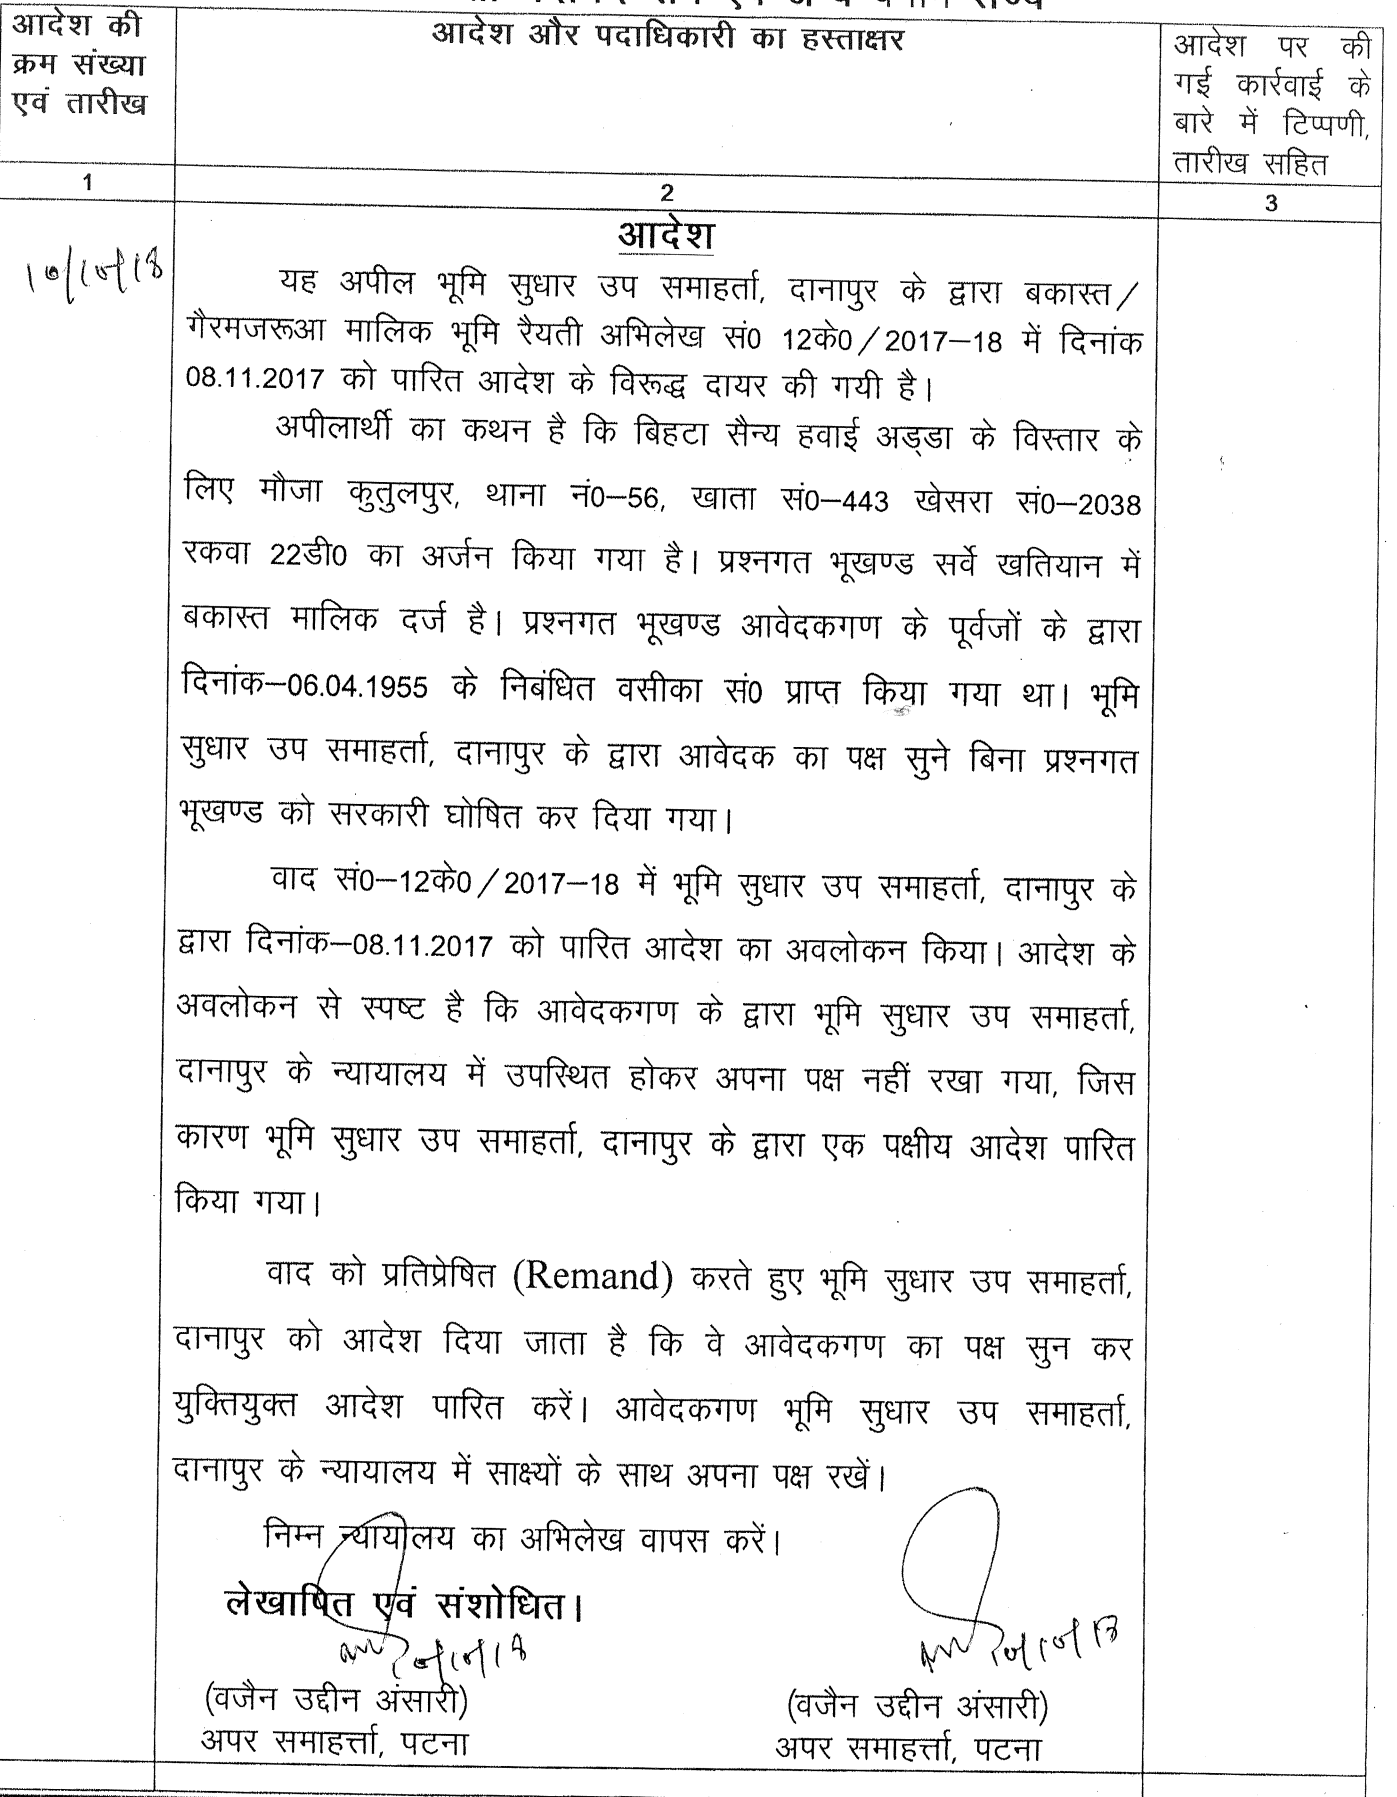 आदेश की
क्रम संख्या
एवं तारीख
आदेश और पदाधिकारी का हस्ताक्षर
आदेश पर की
गई कार्रवाई के
बारे में टिप्पणी,
तारीख सहित
1
2
3
10/10/18
आदेश
यह अपील भूमि सुधार उप समाहर्ता, दानापुर के द्वारा बकास्त/
गैरमजरूआ मालिक भूमि रैयती अभिलेख सं0 12के0/2017–18 में दिनांक
08.11.2017 को पारित आदेश के विरूद्ध दायर की गयी है।
अपीलार्थी का कथन है कि बिहटा सैन्य हवाई अड्डा के विस्तार के
लिए मौजा कुतुलपुर, थाना नं0–56, खाता सं0–443 खेसरा सं0–2038
रकवा 22डी0 का अर्जन किया गया है। प्रश्नगत भूखण्ड सर्वे खतियान में
बकास्त मालिक दर्ज है। प्रश्नगत भूखण्ड आवेदकगण के पूर्वजों के द्वारा
दिनांक–06.04.1955 के निबंधित वसीका सं0 प्राप्त किया गया था। भूमि
सुधार उप समाहर्ता, दानापुर के द्वारा आवेदक का पक्ष सुने बिना प्रश्नगत
भूखण्ड को सरकारी घोषित कर दिया गया।
वाद सं0–12के0/2017–18 में भूमि सुधार उप समाहर्ता, दानापुर के
द्वारा दिनांक–08.11.2017 को पारित आदेश का अवलोकन किया। आदेश के
अवलोकन से स्पष्ट है कि आवेदकगण के द्वारा भूमि सुधार उप समाहर्ता,
दानापुर के न्यायालय में उपस्थित होकर अपना पक्ष नहीं रखा गया, जिस
कारण भूमि सुधार उप समाहर्ता, दानापुर के द्वारा एक पक्षीय आदेश पारित
किया गया।
वाद को प्रतिप्रेषित (Remand) करते हुए भूमि सुधार उप समाहर्ता,
दानापुर को आदेश दिया जाता है कि वे आवेदकगण का पक्ष सुन कर
युक्तियुक्त आदेश पारित करें। आवेदकगण भूमि सुधार उप समाहर्ता,
दानापुर के न्यायालय में साक्ष्यों के साथ अपना पक्ष रखें।
निम्न न्यायालय का अभिलेख वापस करें।
लेखापित एवं संशोधित।
10/10/18
10/10/18
(वजैन उद्दीन अंसारी)
अपर समाहर्त्ता, पटना
(वजैन उद्दीन अंसारी)
अपर समाहर्त्ता, पटना